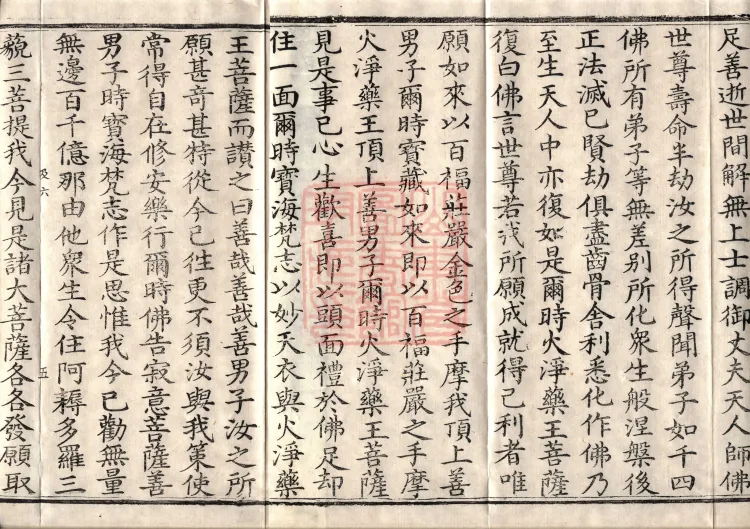 足善逝世間解無上士調御丈夫天人師佛
世尊壽命半劫汝之所得聲聞弟子如千四
佛所有弟子等無差别所化衆生般涅槃後
正法滅已賢劫俱盡齒骨舍利悉化作佛乃
至生天人中亦復如是爾時火淨藥王菩薩
復白佛言世尊若我所願成就得己利者唯
願如來以百福莊嚴金色之手摩我頂上善
男子爾時寶藏如來即以百福莊嚴之手摩
火淨藥王頂上善男子爾時火淨藥王菩薩
見是事已心生歡喜即以頭面禮於佛足却
住一面爾時寶海梵志以妙天衣與火淨藥
王菩薩而讃之曰善哉善哉善男子汝之所
願甚奇甚特從今已往更不須汝與我策使
常得自在修安樂行爾時佛告寂意菩薩善
男子時寶海梵志作是思惟我今已勸無量
無邊百千億那由他衆生令住阿耨多羅三
及六
五
藐三菩提我今見是諸大菩薩各各發願取